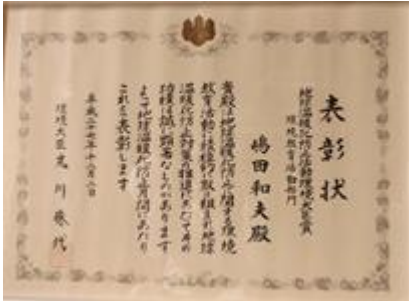 表彰状
地球温暖化防止活動環境大臣賞
環境教育活動部門
嶋田和夫殿
貴殿は地球温暖化防止に関する環境
教育活動に積極的に取り組まれ地球
温暖化防止対策の推進に尽力され
功績は誠に顕著なものがあります
よって地球温暖化防止月間にあたり
これを表彰します
平成二十七年十二月二日
環境大臣 丸川珠代